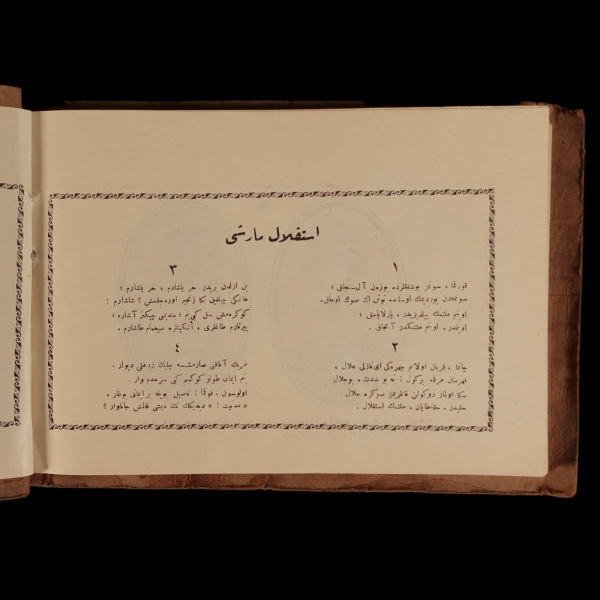 استقلال مارشى
١
قورقما ، سونمز بوشفقلرده يوزەن آل سنجاق ؛
سونمەدن يوردمك اوستنده توتن اك صوك اوجاق .
او بنم ملتمك ييلديزيدر ، پارلاياجق ؛
او بنمدر ، او بنم ملتمكدر آنجاق .
٢
چاتما ، قربان اولايم چهرەكى اى نازلى هلال ،
قهرمان عرقمه بر گول ! نه بو شدت ، بو جلال
سكا اولماز دوكولن قانلريمز صوكره حلال
حقيدر ، حقه طاپان ، ملتمك استقلال .
٣
بن ازلدن بريدر حر ياشادم ، حر ياشارم ؛
هانكى چيلغين بكا زنجير اوره جقمش ؟ شاشارم !
كوكره مش سل كبى يم ؛ بنديمى چيكنر آشارم ؛
ييرتارم طاغلرى ، انكينلره سيغمام طاشارم .
٤
غربك آفاقنى صارمشسه چليك زرهلى ديوار .
بنم ايمان طولو كوكسم كبى سرحدم وار .
اولوسون ، قورقما ! ناصل بويله بر ايمانى بوغار .
« مدنيت ! » ديديكك تك ديشى قالمش جاناوار ؟